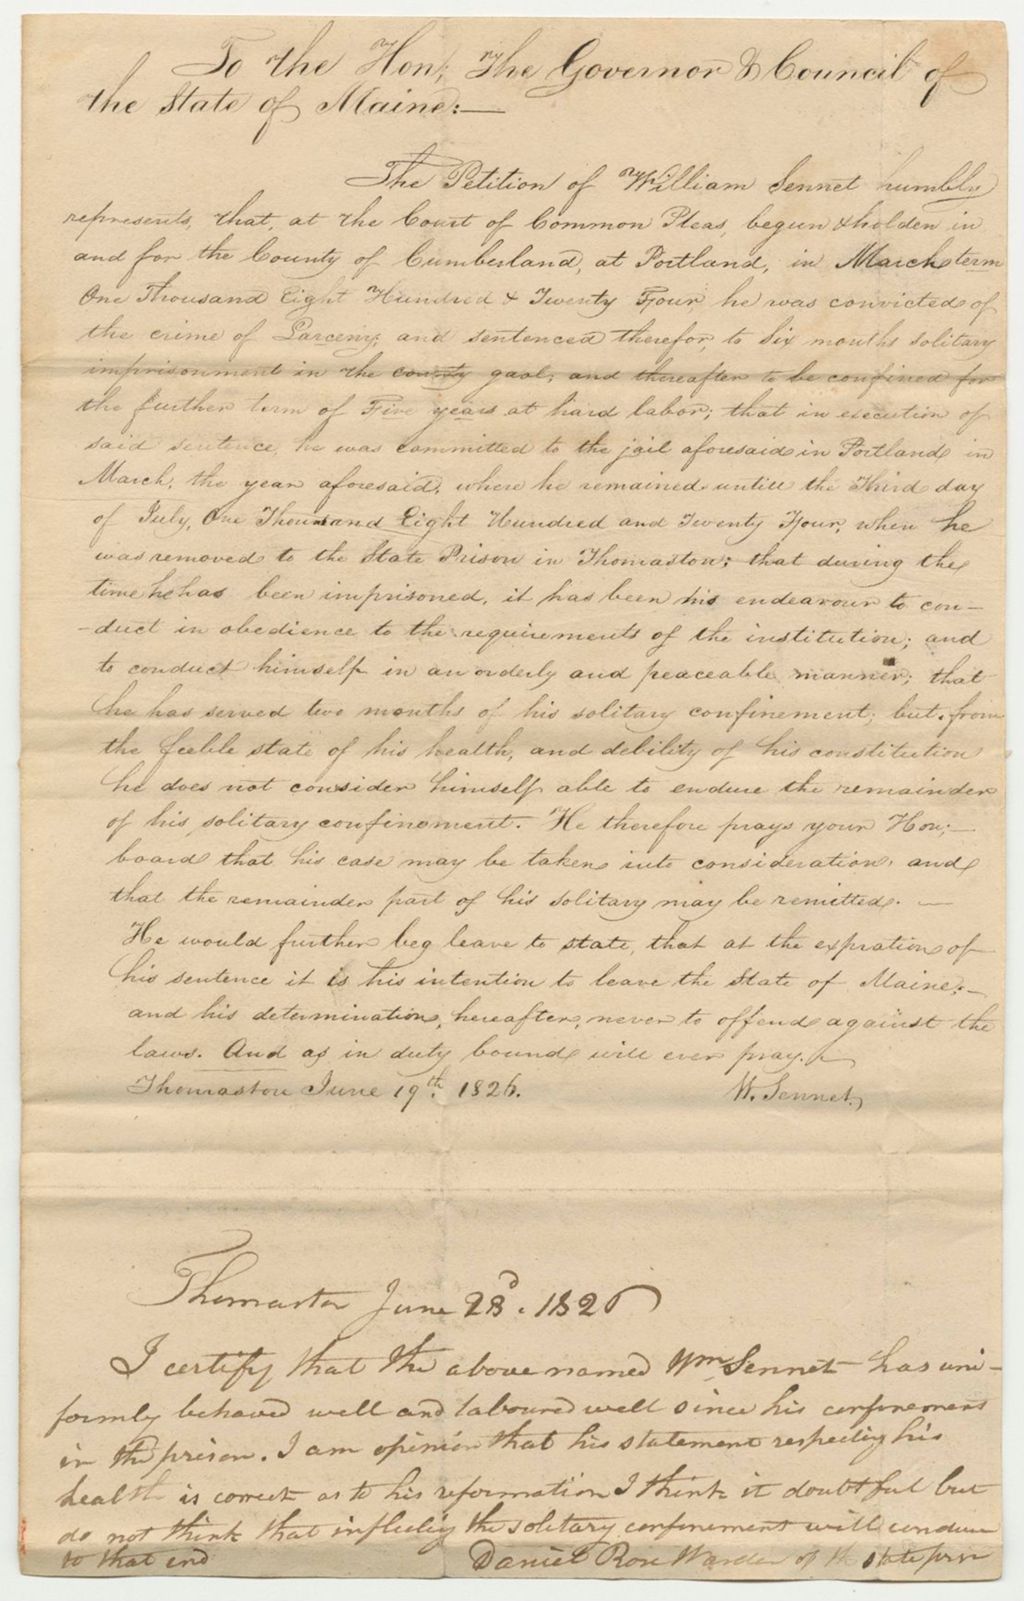 To the Hon; The Governor & Council of
the State of Maine:—
The Petition of William Sennet humbly
represents, that, at the Court of Common Pleas, begun & holden in
and for the County of Cumberland, at Portland, in March term
One Thousand Eight Hundred & Twenty Four, he was convicted of
the crime of Larceny; and sentenced therefor, to Six months solitary
imprisonment in the county gaol; and thereafter to be confined for
the further term of Five years at hard labor; that in execution of
said sentence, he was committed to the jail aforesaid in Portland in
March, the year aforesaid, where he remained untill the Third day
of July, One Thousand Eight Hundred and Twenty Four, when he
was removed to the State Prison in Thomaston; that during the
time he has been imprisoned, it has been his endeavour to con-
-duct in obedience to the requirements of the institution; and
to conduct himself in an orderly and peaceable manner; that
he has served two months of his solitary confinement; but from
the feeble state of his health, and debility of his constitution
he does not consider himself able to endure the remainder
of his solitary confinement. He therefore prays your Hon;—
board that his case may be taken into consideration, and
that the remainder part of his solitary may be remitted. —
He would further beg leave to state, that at the expration of
his sentence it is his intention to leave the State of Maine;—
and his determination, hereafter, never to offend against the
laws. And as in duty bound will ever pray.
Thomaston June 19th. 1826. W. Sennet,
Thomaston June 28d. 1826
I certify that the above named Wm Sennet has uni-
formly behaved well and laboured well since his confinement
in the prison. I am opinion that his statement respecting his
health is correct as to his reformation I think it doubtful but
do not think that inflicting the solitary confinement will conduce
to that end Daniel Rose Warden of the state prison